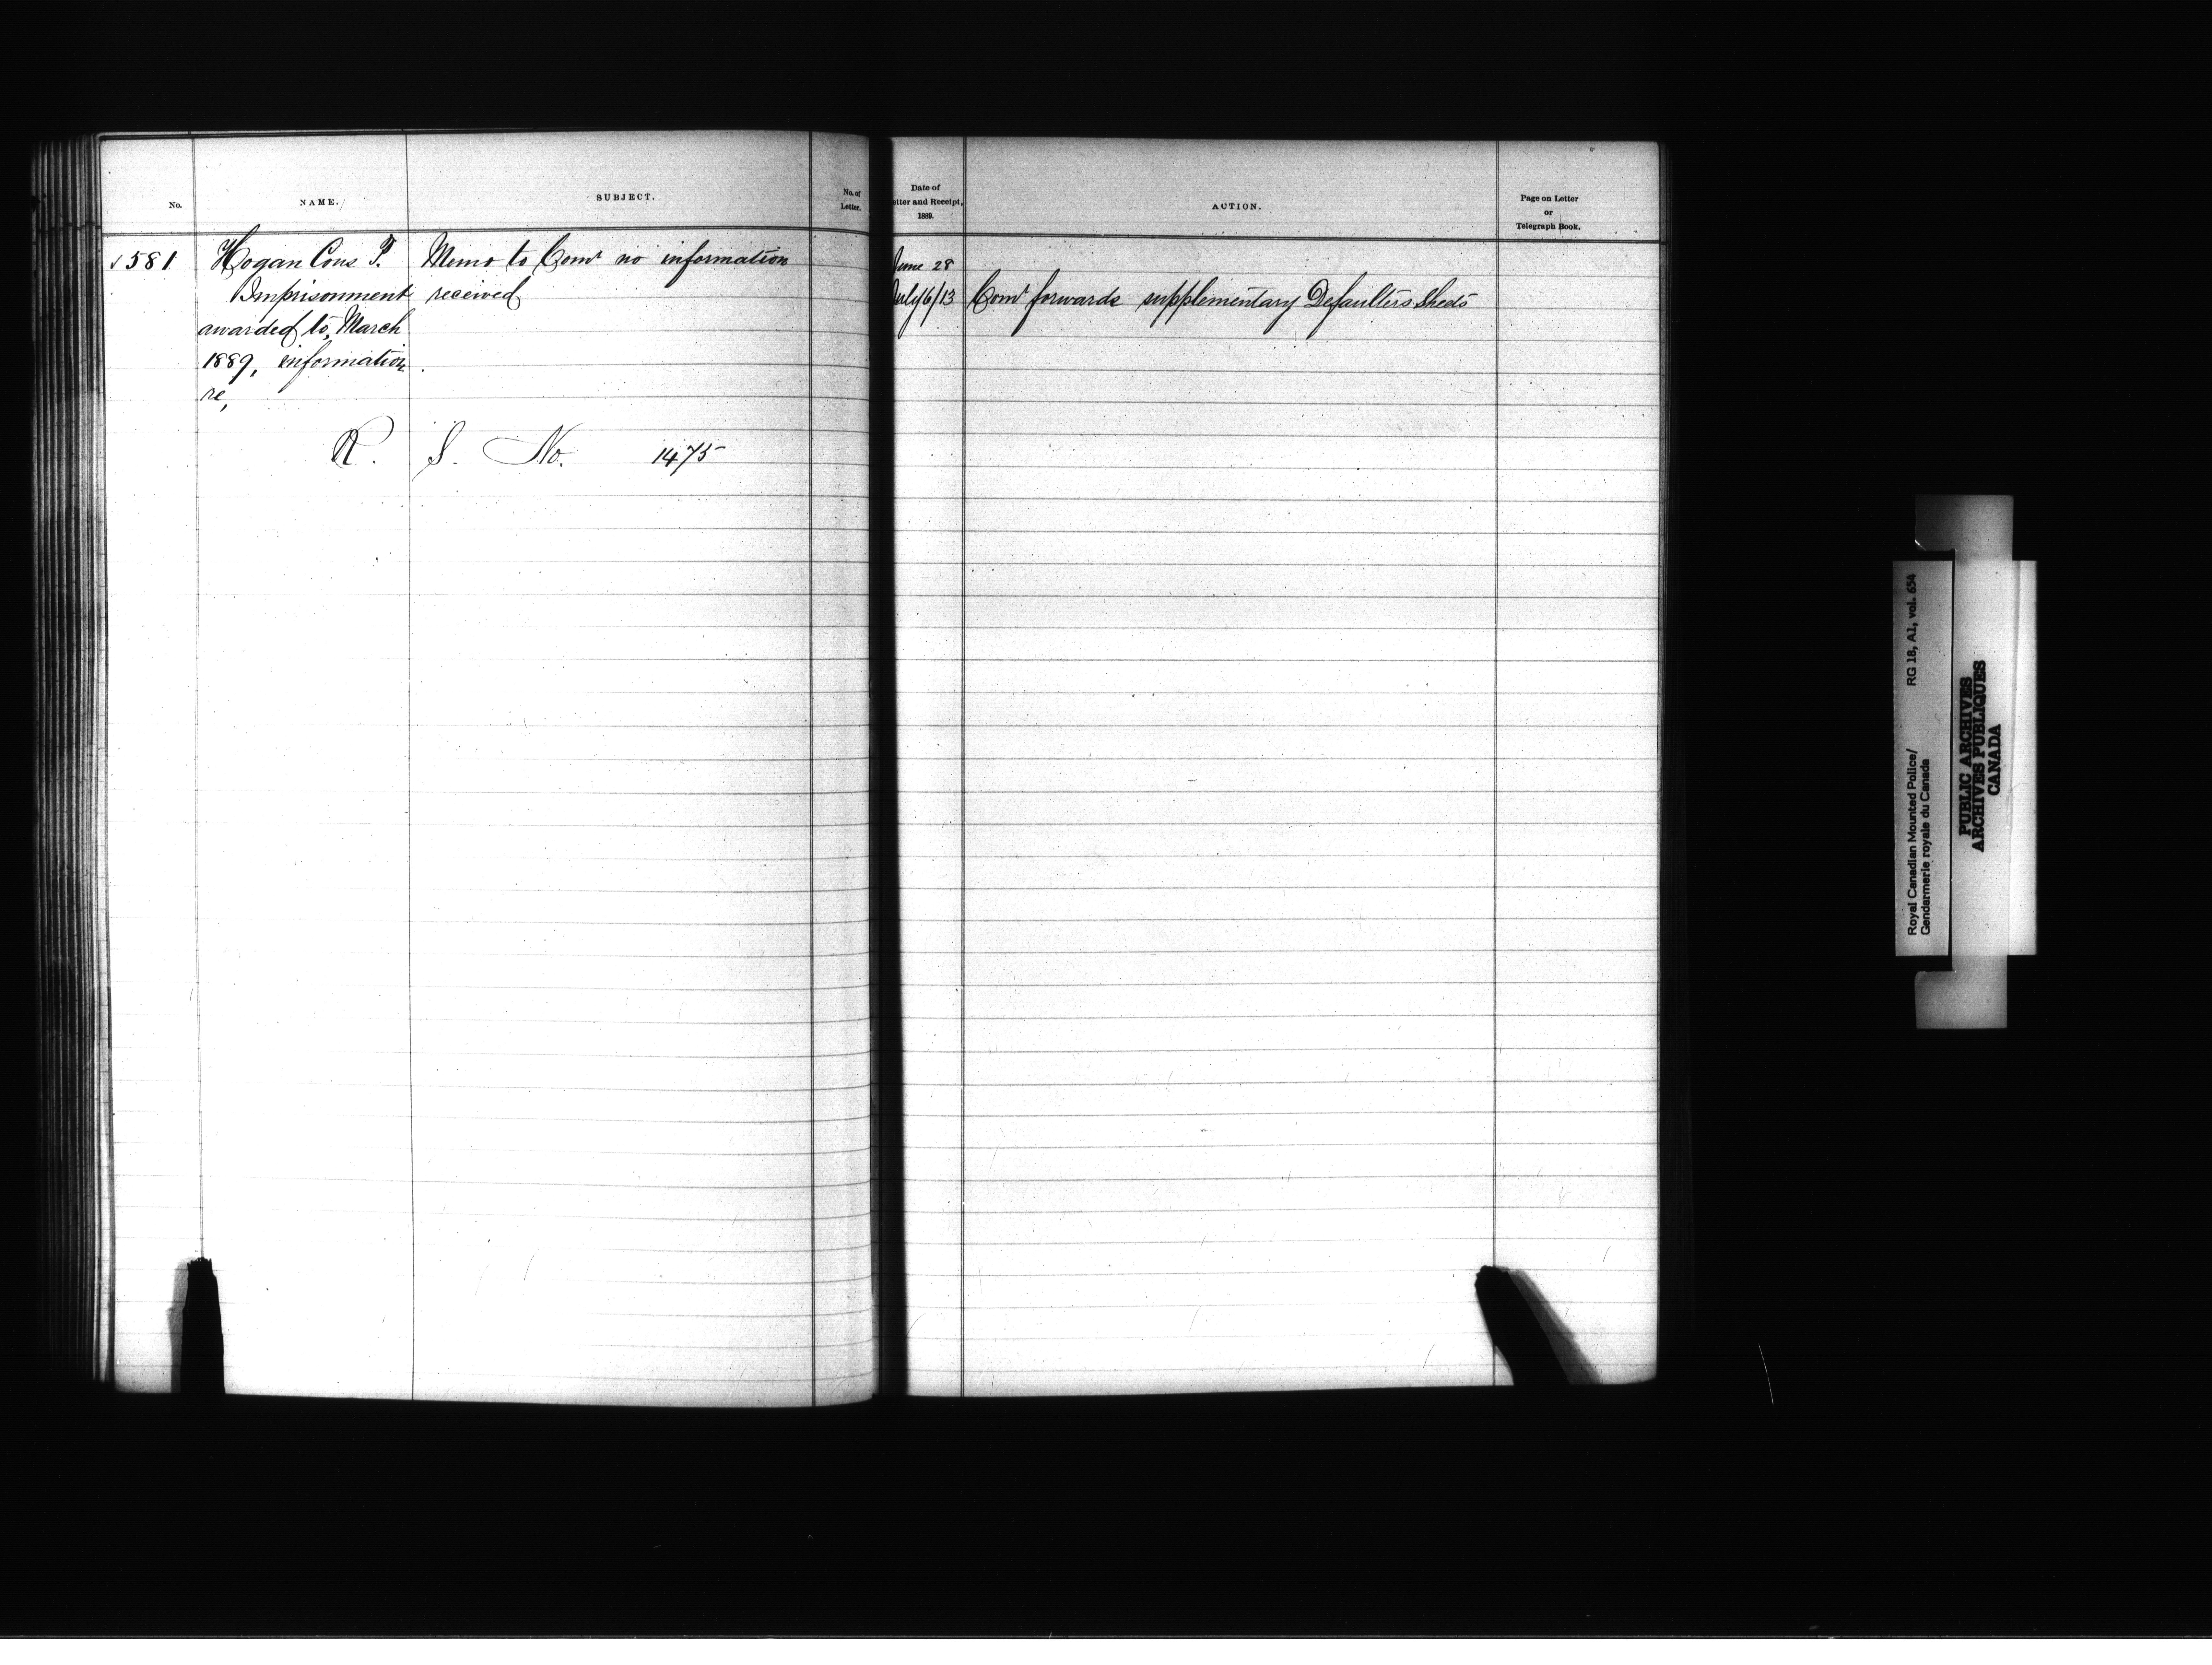 No.
NAME.
SUBJECT.
No. of
Letter.
Date of
etter and Receipt,
1889.
ACTION.
Page on Letter
or
Telegraph Book.
✓ 581
Hogan Cons T.
Imprisonment
awarded to, March
1889, information
re,
Memo to Comr no information
received
June 28
July 6/13
Comr forwards supplementary Defaulters Sheets
R. S. No. 1475
Royal Canadian Mounted Police/ RG 18, A1, vol. 654
Gendarmerie royale du Canada
PUBLIC ARCHIVES
ARCHIVES PUBLIQUES
CANADA